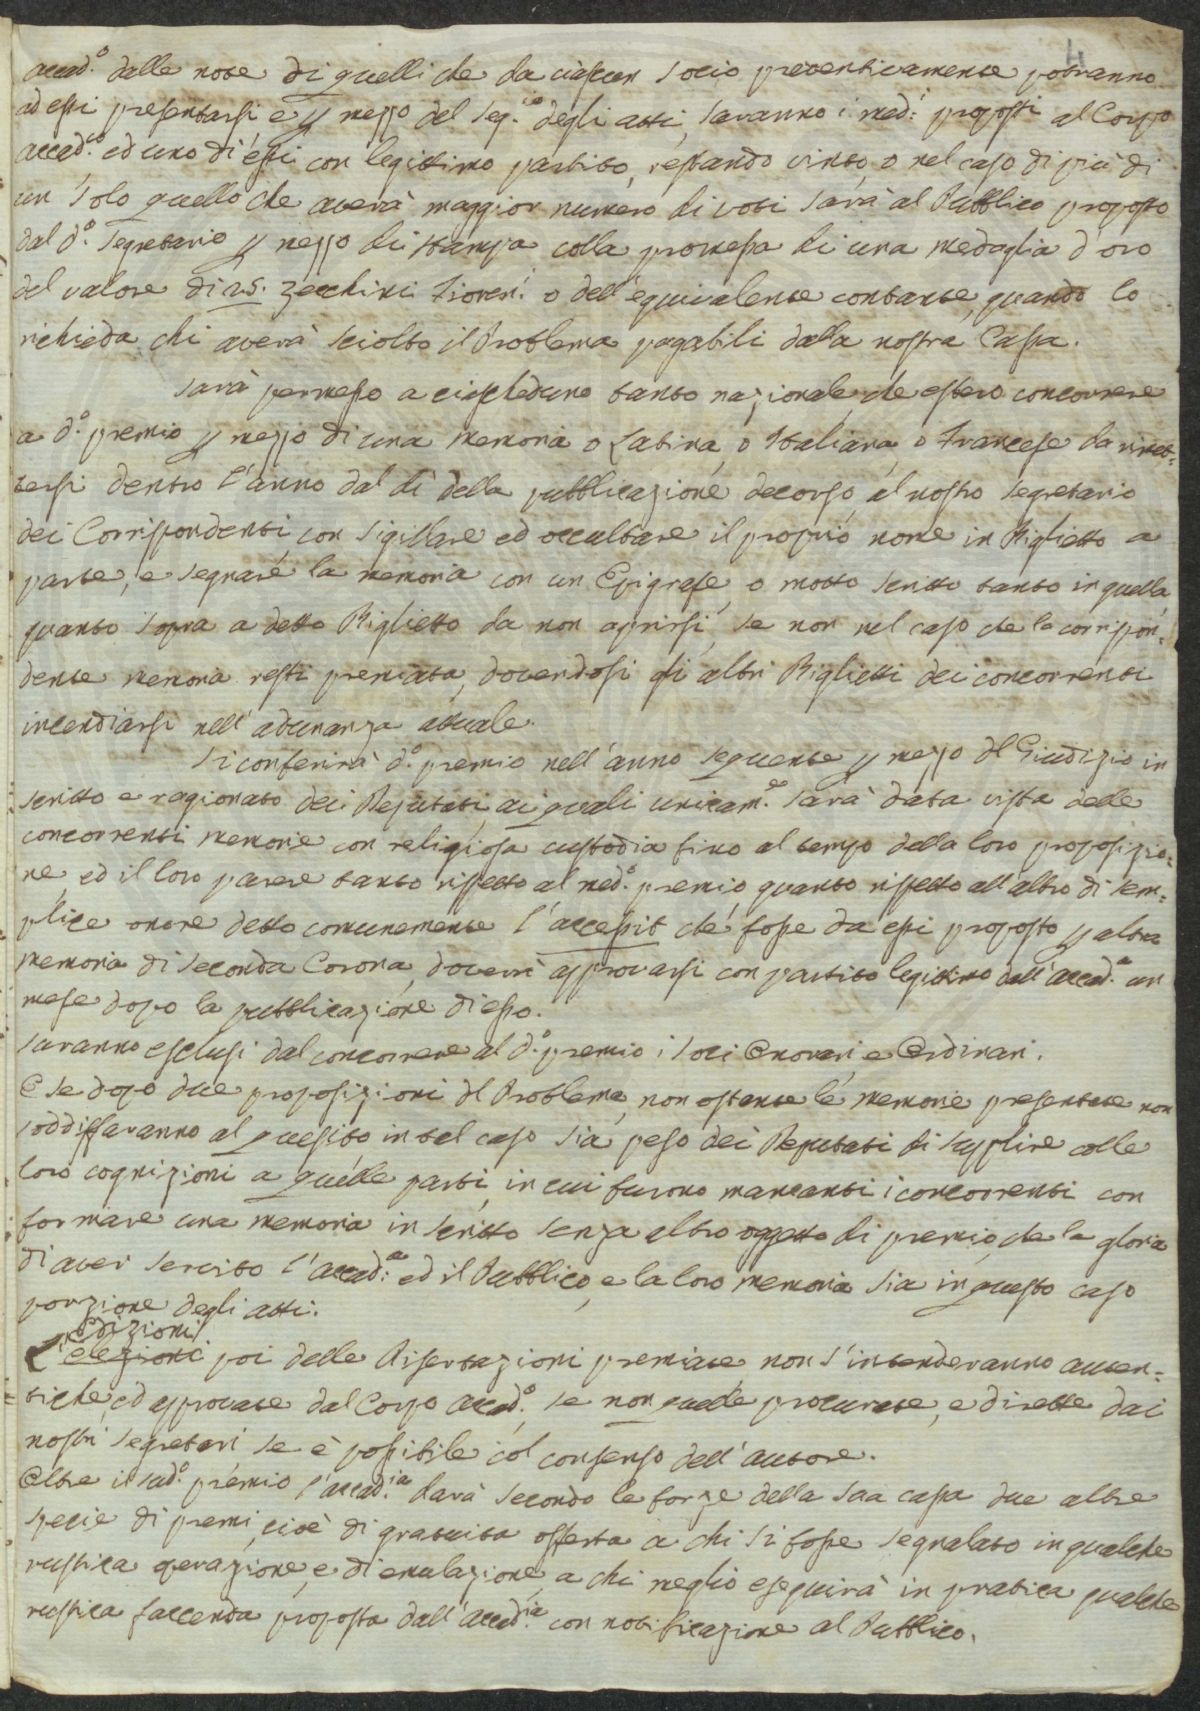 4
accad.º dalle note di quelli che da ciascun Socio preventivamente potranno
ad essi presentarsi, e p mezzo del Seg.rio degli atti, saranno i med.i proposti al Corpo
accad.co, ed uno di essi con legittimo partito, restando vinto, o nel caso di più di
un solo quello che averà maggior numero di voti sarà al Pubblico proposto
dal d.º Segretario p mezzo di stampa colla promessa di una medaglia d'oro
del valore di 25. Zecchini Fioren.i o dell'equivalente contante, quando lo
richieda chi averà sciolto il Problema pagabili dalla nostra Cassa.
Sarà permesso a ciascheduno tanto nazionale, che estero concorrere
a d.º premio p mezzo di una memoria o Latina, o Italiana, o Francese da rimet=
tersi dentro l'anno dal dì della pubblicazione decorso, al nostro Segretario
dei Corrispondenti, con sigillare ed occultare il proprio nome in Biglietto a
parte, e segnare la memoria con un Epigrafe, o motto scritto tanto in quella,
quanto sopra a detto Biglietto da non aprirsi, se non nel caso che la corrispon=
dente memoria resti premiata, dovendosi gli altri Biglietti dei concorrenti
incendiarsi nell'adunanza attuale.
Si conferirà d.º premio nell'anno seguente p mezzo del Giudizio in
scritto e ragionato dei Deputati, ai quali unicam.te sarà data vista delle
concorrenti memorie con religiosa custodia fino al tempo della loro proposizio=
ne, ed il loro parere tanto rispetto al med.º premio, quanto rispetto all'altro di sem=
plice onore detto comunemente l'accessit che fosse da essi proposto p altra
memoria di seconda Corona, doverrà approvarsi con partito legittimo dall'accad.a un
mese dopo la pubblicazione di esso.
Saranno esclusi dal concorrere al d.º premio i Soci Onorari, e Ordinari.
E se dopo due proposizioni del Problema, non ostante le memorie presentate non
soddisfaranno al quesito in tal caso sia peso dei Deputati di supplire colle
loro cognizioni a quelle parti, in cui furono mancanti i concorrenti con
formare una memoria in scritto senza altro oggetto di premio, che la gloria
di aver servito l'accad.a ed il Pubblico, e la loro memoria sia in questo caso
porzione degli atti.
edizioni
L'elezioni poi delle Disertazioni premiate non s'intenderanno auten=
tiche, ed approvate dal Corpo accad.º, se non quelle procurate, e dirette dai
nostri Segretari se è possibile col consenso dell'autore.
Oltre il sud.º premio l'accad.ia darà secondo le forze della sua cassa due altre
specie di premi, cioè di gratuita offerta a chi si fosse segnalato in qualche
rustica operazione, e di emulazione, a chi meglio eseguirà in pratica qualche
rustica faccenda proposta dall'accad.ia con notificazione al Pubblico.